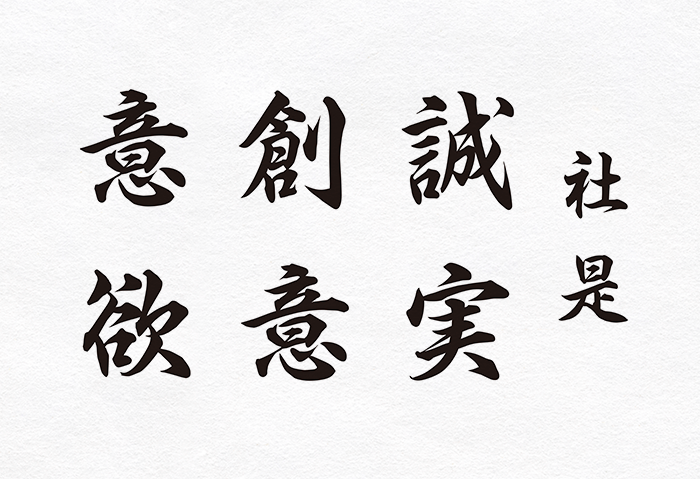 社是
誠実
創意
意欲